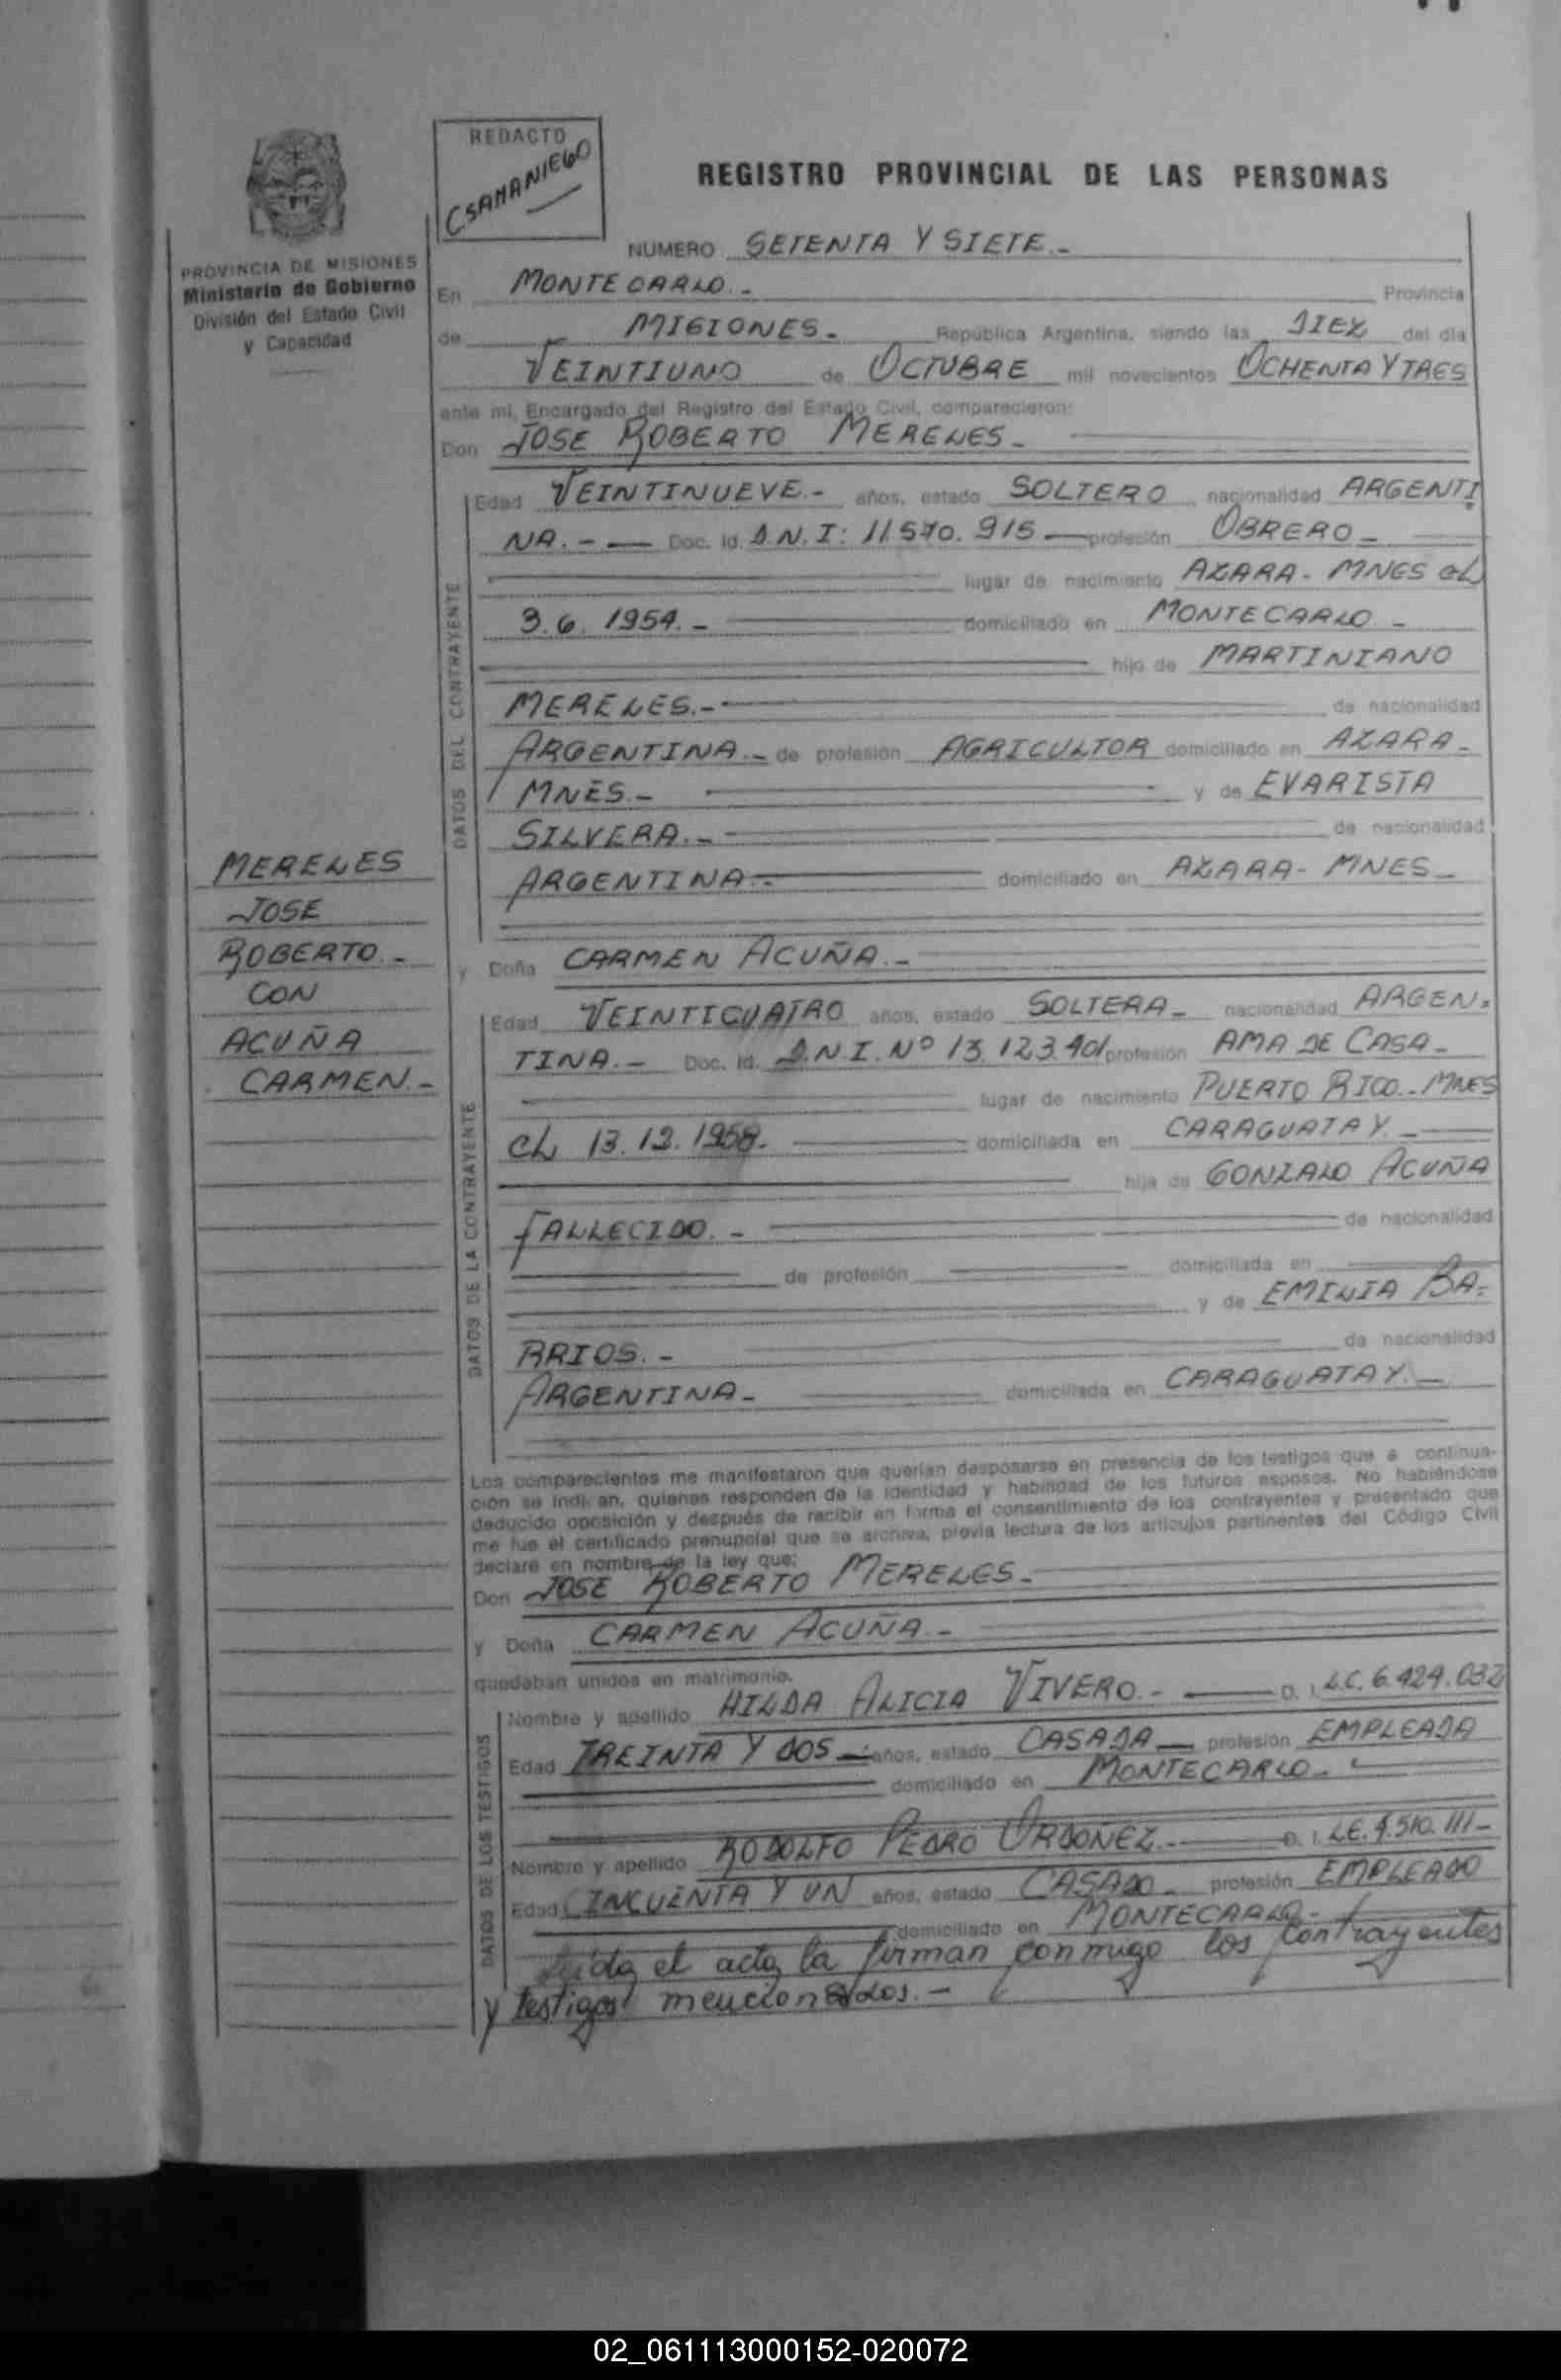 REDACTO
CSAMANIEGO
REGISTRO PROVINCIAL DE LAS PERSONAS
PROVINCIA DE MISIONES
Ministerio de Gobierno
División del Estado Civil
y Capacidad
NUMERO SETENTA Y SIETE.-
En MONTECARLO.- Provincia
de MISIONES.- República Argentina, siendo las DIEZ del día
VEINTIUNO de OCTUBRE mil novecientos OCHENTA Y TRES
ante mi, Encargado del Registro del Estado Civil, comparecieron:
Don JOSE ROBERTO MERELES.-
DATOS DEL CONTRAYENTE
Edad VEINTINUEVE.- años, estado SOLTERO nacionalidad ARGENTI
NA.- Doc. Id. D.N.I: 11.570.915 profesión OBRERO-
lugar de nacimiento AZARA- MNES EL
3.6.1954.- domiciliado en MONTECARLO.-
hijo de MARTINIANO
MERELES.- de nacionalidad
ARGENTINA.- de profesión AGRICULTOR domiciliado en AZARA-
MNES.- y de EVARISTA
SILVERA.- de nacionalidad
ARGENTINA.- domiciliado en AZARA- MNES-
MERELES
JOSE
ROBERTO.-
CON
ACUÑA
CARMEN.-
y Doña CARMEN ACUÑA.-
DATOS DE LA CONTRAYENTE
Edad VEINTICUATRO años, estado SOLTERA- nacionalidad ARGEN-
TINA.- Doc. Id. D.N.I. Nº 13.123.401 profesión AMA DE CASA-
lugar de nacimiento PUERTO RICO.- MNES
EL 13.12.1958.- domiciliada en CARAGUATAY.-
hija de GONZALO ACUÑA
FALLECIDO.- de nacionalidad
de profesión domiciliada en
y de EMILIA BA-
RRIOS.- de nacionalidad
ARGENTINA- domiciliada en CARAGUATAY.-
Los comparecientes me manifestaron que querían desposarse en presencia de los testigos que a continua-
ción se indican, quienes responden de la identidad y habilidad de los futuros esposos. No habiéndose
deducido oposición y después de recibir en forma el consentimiento de los contrayentes y presentado que
me fue el certificado prenupcial que se archiva, previa lectura de los artículos pertinentes del Código Civil
declaré en nombre de la ley que:
Don JOSE ROBERTO MERELES-
y Doña CARMEN ACUÑA.-
quedaban unidos en matrimonio.
DATOS DE LOS TESTIGOS
Nombre y apellido HILDA ALICIA VIVERO.- D. I. L.C. 6.424.032
Edad TREINTA Y DOS años, estado CASADA profesión EMPLEADA
domiciliado en MONTECARLO.-
Nombre y apellido RODOLFO PEDRO ORDOÑEZ.- D. I. L.E. 7.510.111-
Edad CINCUENTA Y UN años, estado CASADO- profesión EMPLEADO
domiciliado en MONTECARLO.-
Leida el acta, la firman conmigo los contrayentes
y testigos mencionados.-
02_061113000152-020072